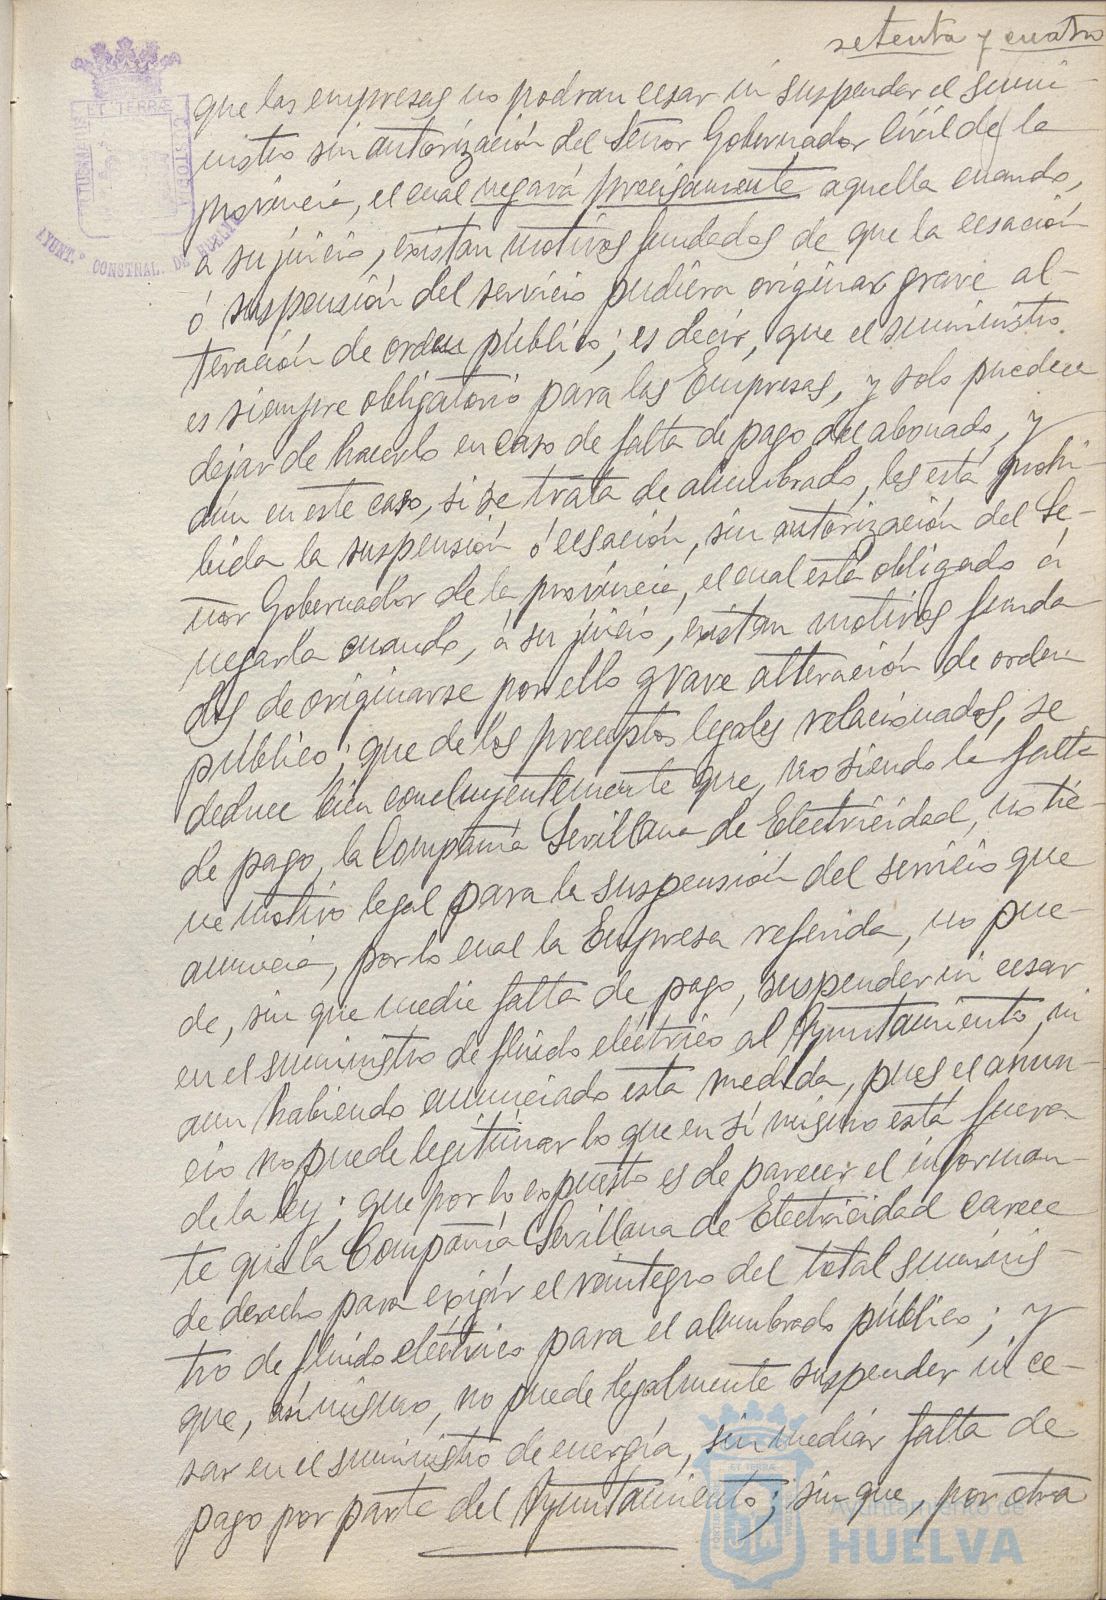 setenta y cuatro
que las empresas no podran cesar ni suspender el sumi-
nistro sin autorización del Señor Gobernador Civil de la
provincia, el cual negará precisamente aquella cuando,
a su juicio, existan motivos fundados de que la cesación
ó suspensión del servicio pudiera originar grave al-
teración de orden público; es decir, que el suministro
es siempre obligatorio para las Empresas, y solo pueden
dejar de hacerlo en caso de falta de pago del abonado, y
aún en este caso, si se trata de alumbrado, les está prohi-
bida la suspensión ó cesación, sin autorización del Se-
ñor Gobernador de la provincia, el cual está obligado á
negarla cuando, á su juicio, existan motivos funda-
dos de originarse por ello grave alteración de orden
público; que de los preceptos legales relacionados, se
deduce bien concluyentemente que, no siendo la falta
de pago, la Compañía Sevillana de Electricidad, no tie-
ne motivo legal para la suspensión del servicio que
anuncia, por lo cual la Empresa referida, no pue-
de, sin que medie falta de pago, suspender ni cesar
en el suministro de fluido eléctrico al Ayuntamiento, ni
aun habiendo anunciado esta medida, pues el anun-
cio no puede legitimar lo que en sí mismo está fuera
de la ley; que por lo expuesto es de parecer el informan-
te que la Compañía Sevillana de Electricidad carece
de derecho para exigir el reintegro del total suminis-
tro de fluido eléctrico para el alumbrado público; y
que, asimismo, no puede legalmente suspender ni ce-
sar en el suministro de energía, sin mediar falta de
pago por parte del Ayuntamiento; sin que, por otra
ET TERRÆ
AYUNT.º CONSTNAL. DE HUELVA
Ayuntamiento de
HUELVA